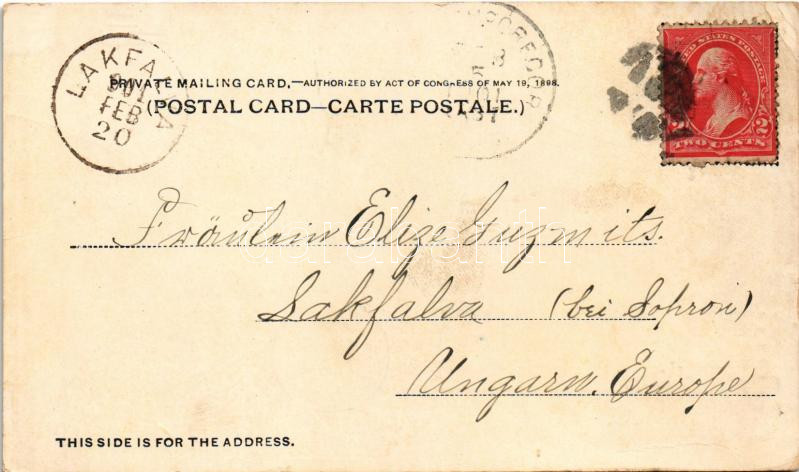 LAKFALVA
FEB
20
UNITED STATES POSTAGE
2 2
TWO CENTS
PRIVATE MAILING CARD,—AUTHORIZED BY ACT OF CONGRESS OF MAY 19, 1898.
(POSTAL CARD—CARTE POSTALE.)
Fräulein Elize Guzmits.
Lakfalva (bei Sopron)
Ungarn. Europe
THIS SIDE IS FOR THE ADDRESS.